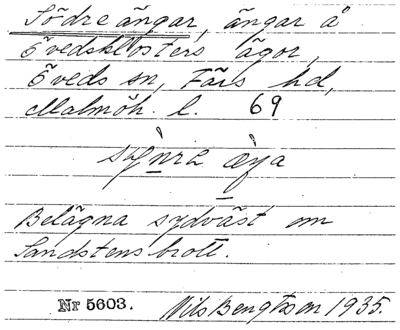 Södre ängar, ängar å
Övedsklosters ägor,
Öveds sn, Färs hd,
Malmöh. l. 69
Belägna sydväst om
Sandstensbrott.
Nr 5603. Nils Bengtsson 1935.